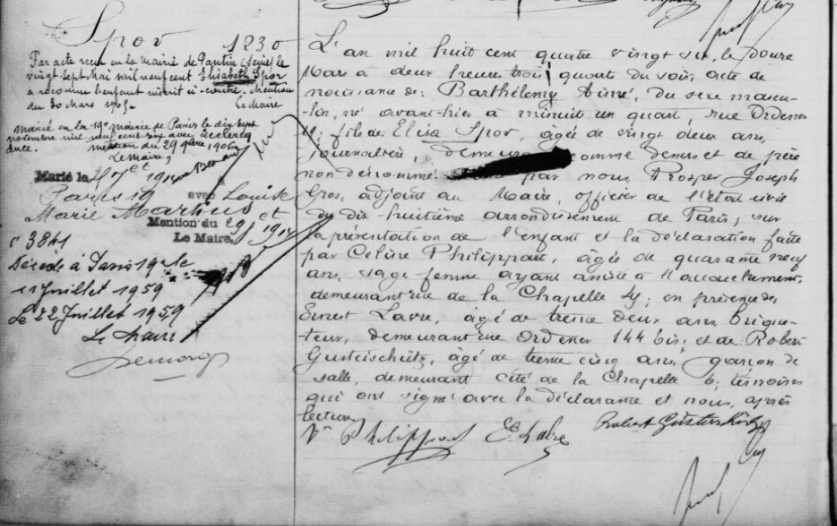 Spor 1230
Par acte reçu en la mairie de Pantin (Seine) le
vingt sept Mai mil neuf cent Elisabeth Spor
a reconnu l'enfant inscrit ci-contre. Mention
du 30 Mars 1905.
Le Maire
Marié en la 19e mairie de Paris le dix sept
novembre mil neuf cent avec Leclercq
mention du 29 9bre 1906
Le Maire,
Marié le 1914
Paris 19 avec Louise
Marie et
Mention du 29 1914
Le Maire
n° 3841
Décédé à Paris 19e le
11 Juillet 1959
Le 22 Juillet 1959
Le Maire
L'an mil huit cent quatre vingt six, le douze
Mars à deux heures trois quarts du soir, acte de
naissance de: Barthélemy Aimé, du sexe mascu-
lin, né avant-hier à minuit un quart, rue Ordener
fils de Elisa Spor, agée de vingt deux ans,
journalière, comme dessus et de père
non dénommé. par nous Prosper Joseph
Gros, adjoint au Maire, officier de l'état civil
du dix-huitième arrondissement de Paris, sur
la présentation de l'enfant et la déclaration faite
par Celine Philippart, âgée de quarante neuf
ans, sage-femme ayant assisté à l'accouchement,
demeurant rue de la Chapelle ; en présence de
Ernest Lavre, agé de trente deux ans,
demeurant rue Ordener 144 bis, et de Robert
agé de trente cinq ans, garçon de
salle, demeurant cité de la Chapelle 6; témoins
qui ont signé avec la déclarante et nous, après
lecture.
Vve Philippart E Lavre Robert